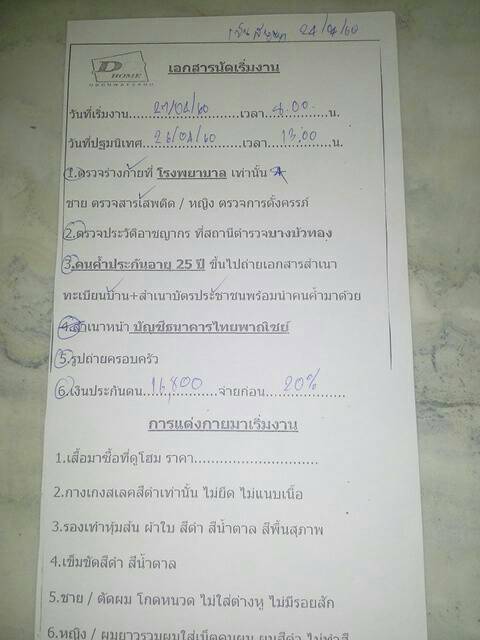 เซ็นสัญญา 24/04/60
D HOME
เอกสารนัดเริ่มงาน
วันที่เริ่มงาน 27/04/60 เวลา 8.00 น.
วันที่ปฐมนิเทศ 26/04/60 เวลา 13.00 น.
1.ตรวจร่างกายที่ โรงพยาบาล เท่านั้น
ชาย ตรวจสารเสพติด / หญิง ตรวจการตั้งครรภ์
2.ตรวจประวัติอาชญากร ที่สถานีตำรวจบางบัวทอง
3.คนค้ำประกันอายุ 25 ปี ขึ้นไปถ่ายเอกสารสำเนา
ทะเบียนบ้าน+สำเนาบัตรประชาชนพร้อมนำคนค้ำมาด้วย
4.สำเนาหน้า บัญชีธนาคารไทยพาณิชย์
5.รูปถ่ายครอบครัว
6.เงินประกันตน 16,800 จ่ายก่อน 20%
การแต่งกายมาเริ่มงาน
1.เสื้อมาซื้อที่ดูโฮม ราคา
2.กางเกงสแลคสีดำเท่านั้น ไม่ยืด ไม่แนบเนื้อ
3.รองเท้าหุ้มส้น ผ้าใบ สีดำ สีน้ำตาล สีพื้นสุภาพ
4.เข็มขัดสีดำ สีน้ำตาล
5.ชาย / ตัดผม โกนหนวด ไม่ใส่ต่างหู ไม่มีรอยสัก
6.หญิง / ผมยาวรวมผมใส่เน็ตคลุมผม ผมสีดำ ไม่ทำสี